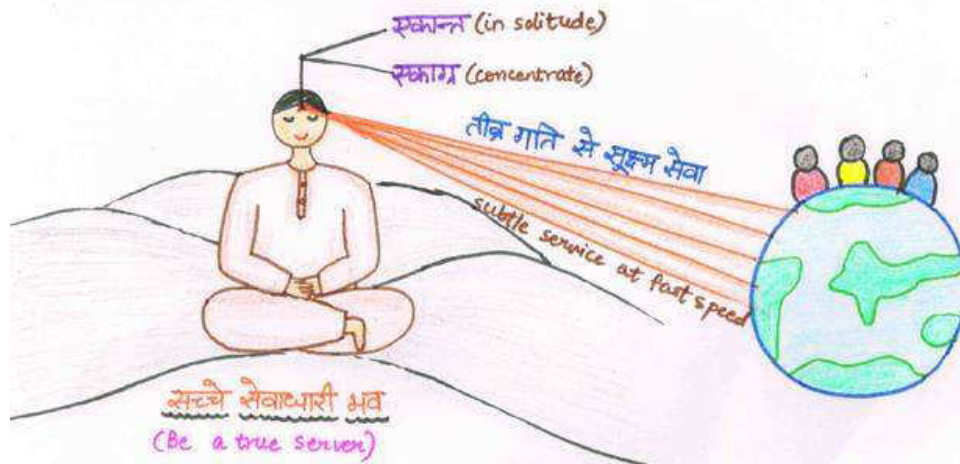 एकान्त (in solitude)
एकाग्र (concentrate)
तीव्र गति से सूक्ष्म सेवा
subtle service at fast speed
सच्चे सेवाधारी भव
(Be a true server)